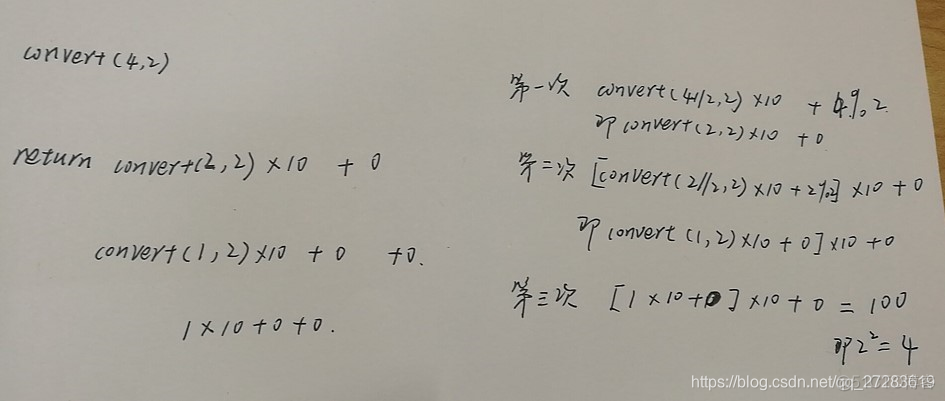 convert(4,2)
return convert(2,2)×10 + 0
convert(1,2)×10 + 0 +0.
1×10+0+0.
第一次 convert(4//2,2)×10 + 4%2
即convert(2,2)×10 +0
第二次 [convert(2//2,2)×10+2%2]×10+0
即convert(1,2)×10+0]×10+0
第三次 [1×10+0]×10+0 = 100
即2²=4
https://blog.csdn.net/qq_27283619